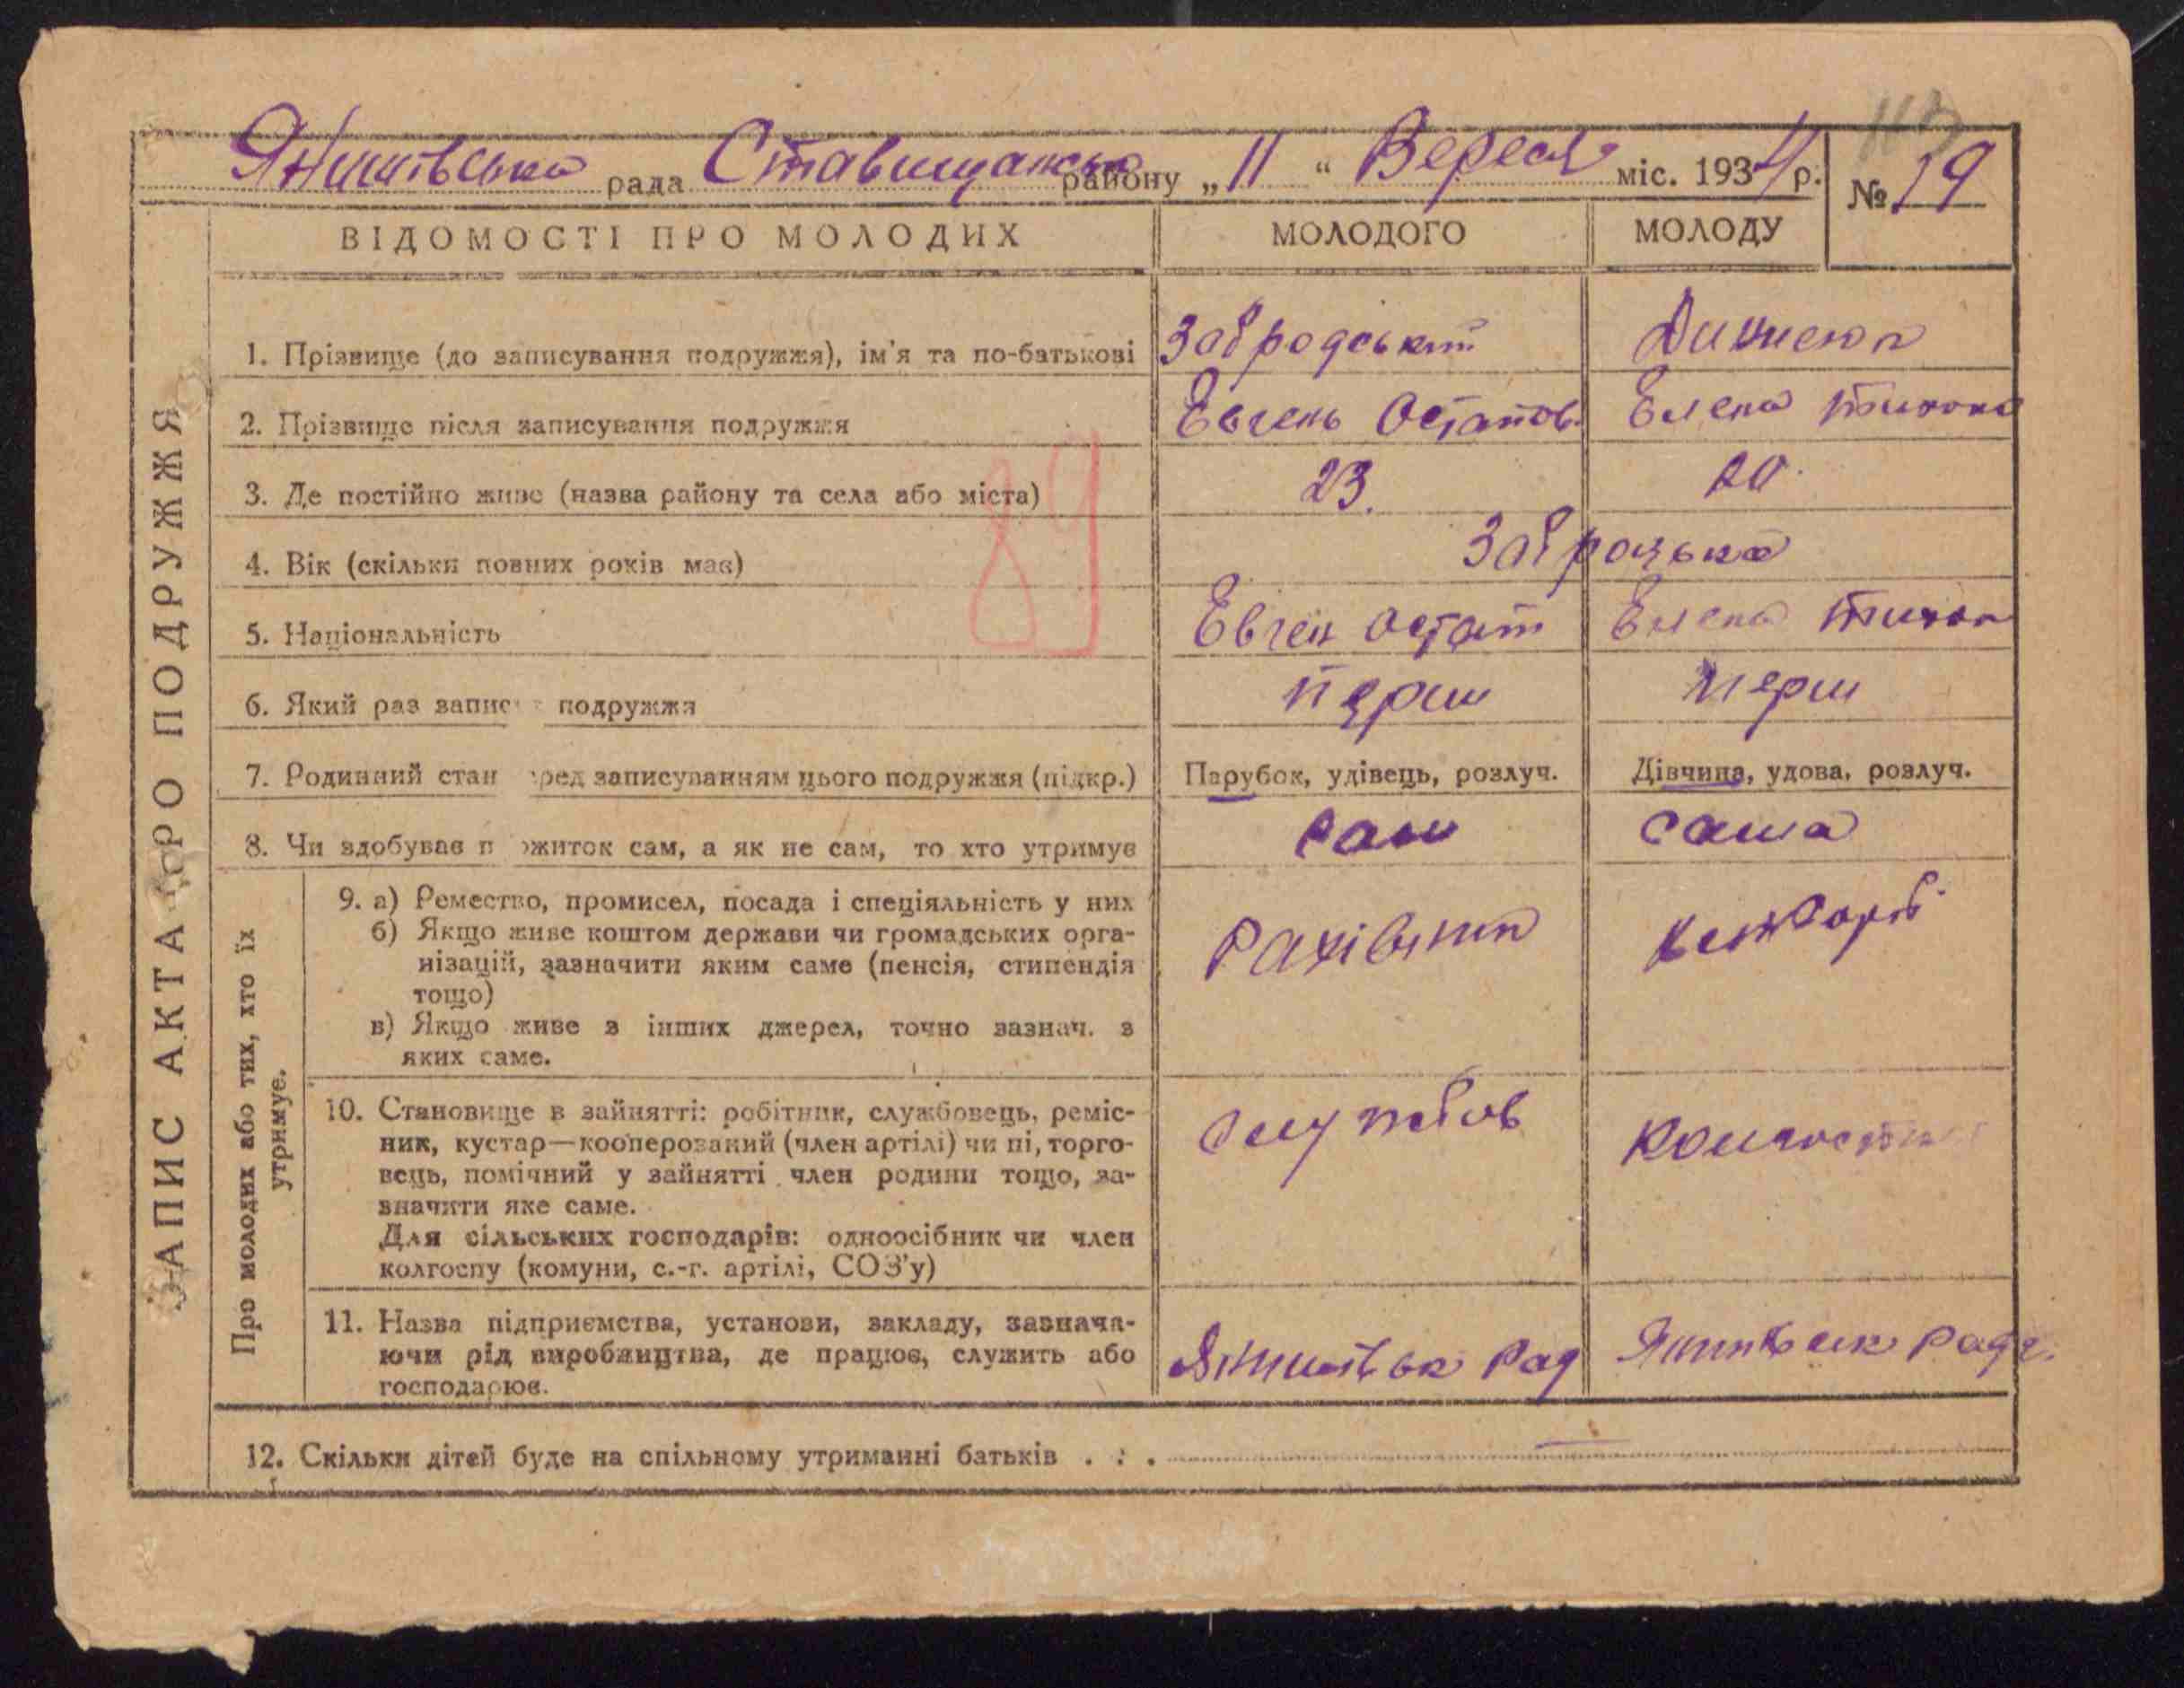 Янишівська рада Ставищанськ району „11“ Вересня міс. 1934 р. № 19
ВІДОМОСТІ ПРО МОЛОДИХ МОЛОДОГО МОЛОДУ
ЗАПИС АКТА ПРО ПОДРУЖЖЯ
1. Прізвище (до записування подружжя), ім'я та по-батькові Забродський
2. Прізвище після записування подружжя Евгень Остапов. Елена Тихон
3. Де постійно живе (назва району та села або міста) 23. 20.
4. Вік (скільки повних років має) Забродська
5. Національність Евген Остап Елена Тихон
6. Який раз запис подружжя перш перш
89
7. Родинний стан еред записуванням цього подружжя (підкр.) Парубок, удівець, розлуч. Дівчина, удова, розлуч.
8. Чи здобував п ожиток сам, а як не сам, то хто утримує сам сама
Про молодих або тих, хто їх
утримує.
9. а) Ремество, промисел, посада і спеціяльність у них
б) Якщо живе коштом держави чи громадських орга-
нізацій, зазначити яким саме (пенсія, стипендія
тощо)
в) Якщо живе з інших джерел, точно зазнач. з
яких саме.
Рахівник
10. Становище в зайнятті: робітник, службовець, реміс-
ник, кустар—кооперований (член артілі) чи ні, торго-
вець, помічний у зайнятті член родини тощо, за-
значити яке саме.
Для сільських господарів: одноосібник чи член
колгоспу (комуни, с.-г. артілі, СОЗ'у)
службов
11. Назва підприємства, установи, закладу, зазнача-
ючи рід виробництва, де працює, служить або
господарює.
Янишівськ Рад Янишівськ Рада.
12. Скільки дітей буде на спільному утриманні батьків . . .